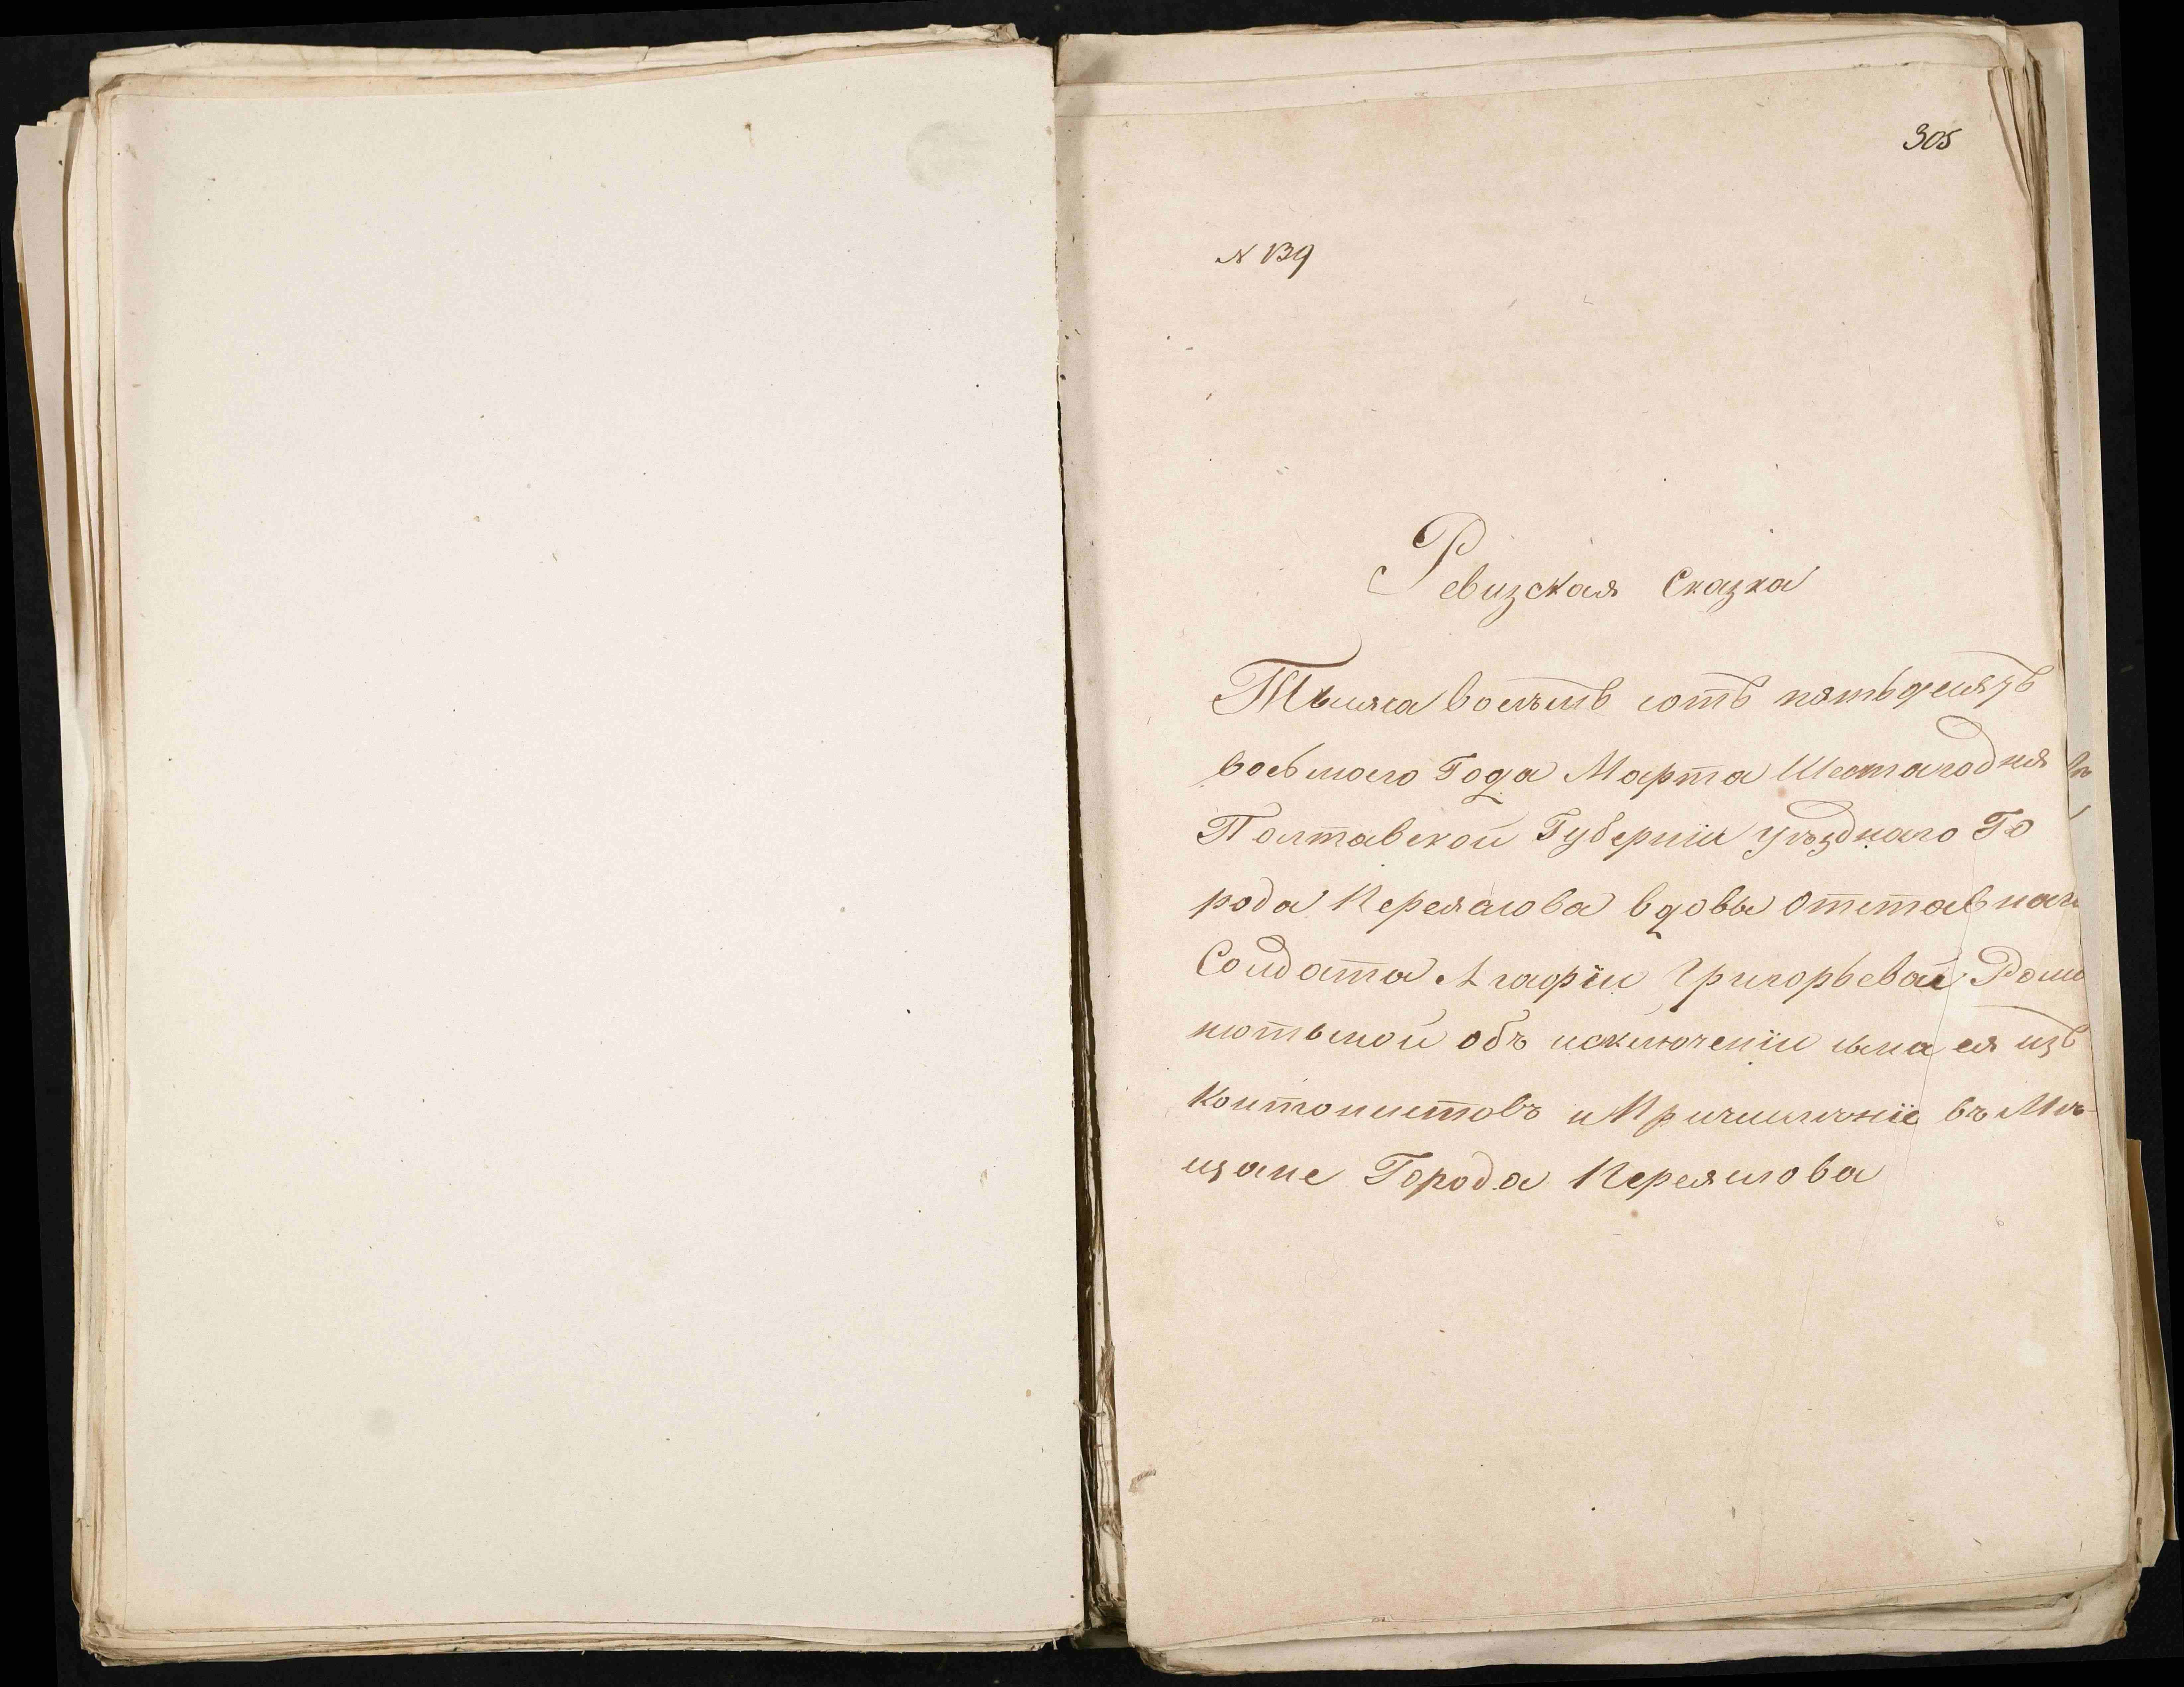 305
№ 139
Ревизская Сказка
Тысяча восемь сотъ пятьдесятъ
восьмого Года Марта Шестагодня
Полтавской Губерніи уѣзднаго Го
рода Переяслова вдовы Отставнаго
Солдата Агафіи Григорьевой
объ исключеніи сына ея изъ
Контонистовъ и Причисленіе въ Мѣ-
щане Города Переяслова